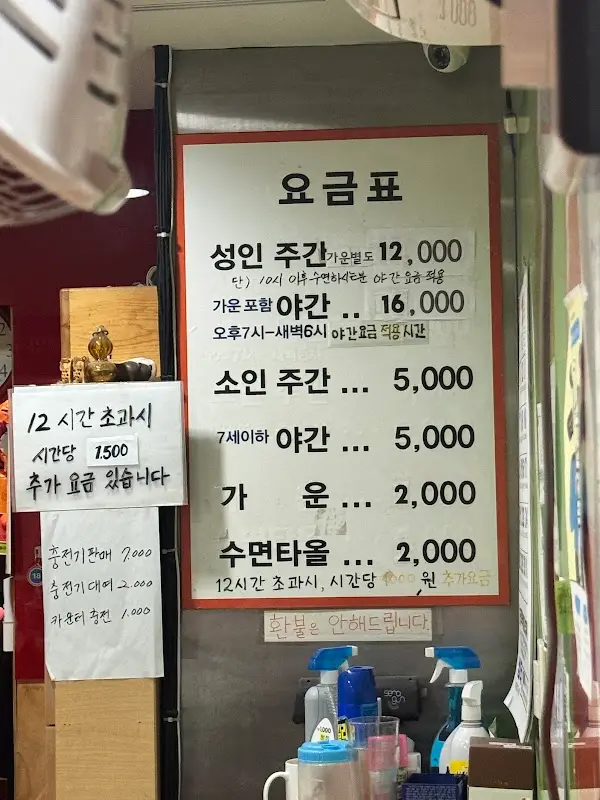 요금표
성인 주간 가운별도 12,000
단) 10시 이후 수면하시는분 야간 요금 적용
가운 포함 야간 .. 16,000
오후7시-새벽6시 야간요금 적용 시간
소인 주간 ... 5,000
7세이하 야간 ... 5,000
가 운 ... 2,000
수면타올 ... 2,000
12시간 초과시, 시간당 원 추가요금
환불은 안해드립니다.
12시간 초과시
시간당 1.500
추가 요금 있습니다
충전기 판매 7.000
충전기 대여 2.000
카운터 충전 1.000